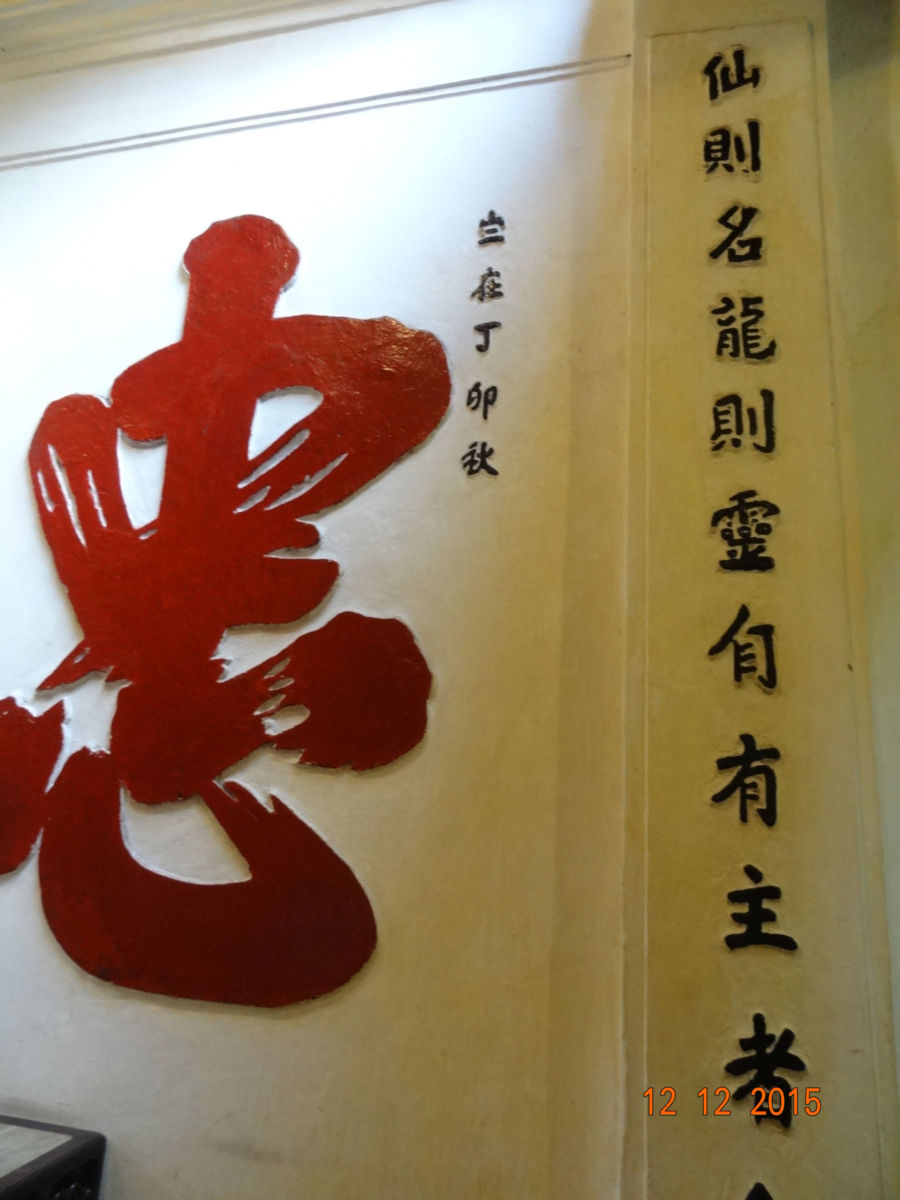 仙則名龍則靈自有主者
亖在丁卯秋
忠
12 12 2015